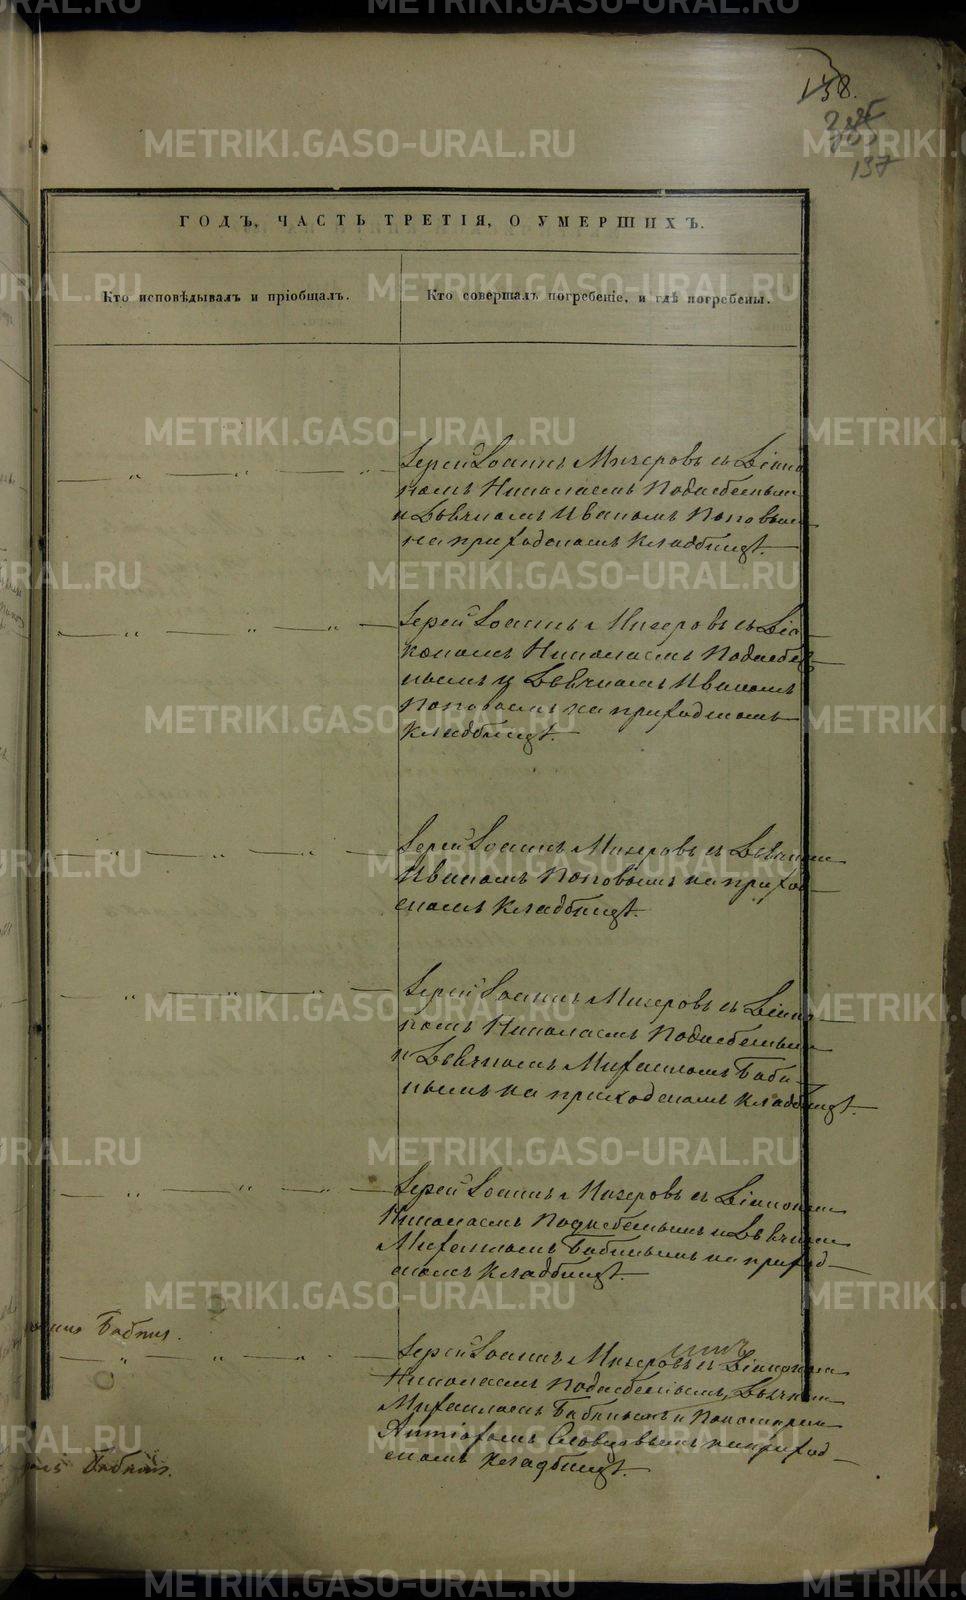 138.
137
ГОДЪ, ЧАСТЬ ТРЕТІЯ, О УМЕРШИХЪ.
Кто исповѣдывалъ и пріобщалъ.
Кто совершалъ погребеніе, и гдѣ погребены.
Іерей Іоаннъ Мизеровъ съ Діако
номъ Николаемъ Подъсбельнымъ
и Дьячкомъ Иваномъ Поповымъ
на приходскомъ кладбищѣ.
Іерей Іоаннъ Мизеровъ съ Діа-
кономъ Николаемъ
нымъ и Дьячкомъ Иваномъ
Поповымъ на приходскомъ
кладбищѣ.
Іерей Іоаннъ Мизеровъ съ Дьячкомъ
Иваномъ Поповымъ на приход-
скомъ кладбищѣ.
Іерей Іоаннъ Мизеровъ съ Діако-
номъ Николаемъ
и Дьячкомъ Михаиломъ Баби-
нымъ на приходскомъ кладбищѣ.
Іерей Іоаннъ Мизеровъ съ Діакономъ
Николаемъ и Дьячкомъ
Михаиломъ Бабинымъ на приход-
скомъ кладбищѣ.
Бабинъ.
Іерей Іоаннъ Мизеровъ съ Діакономъ
Николаемъ Дьячкомъ
Михаиломъ Бабинымъ и Пономаремъ
Словцовымъ на приход-
скомъ кладбищѣ.
Бабинъ.
METRIKI.GASO-URAL.RU